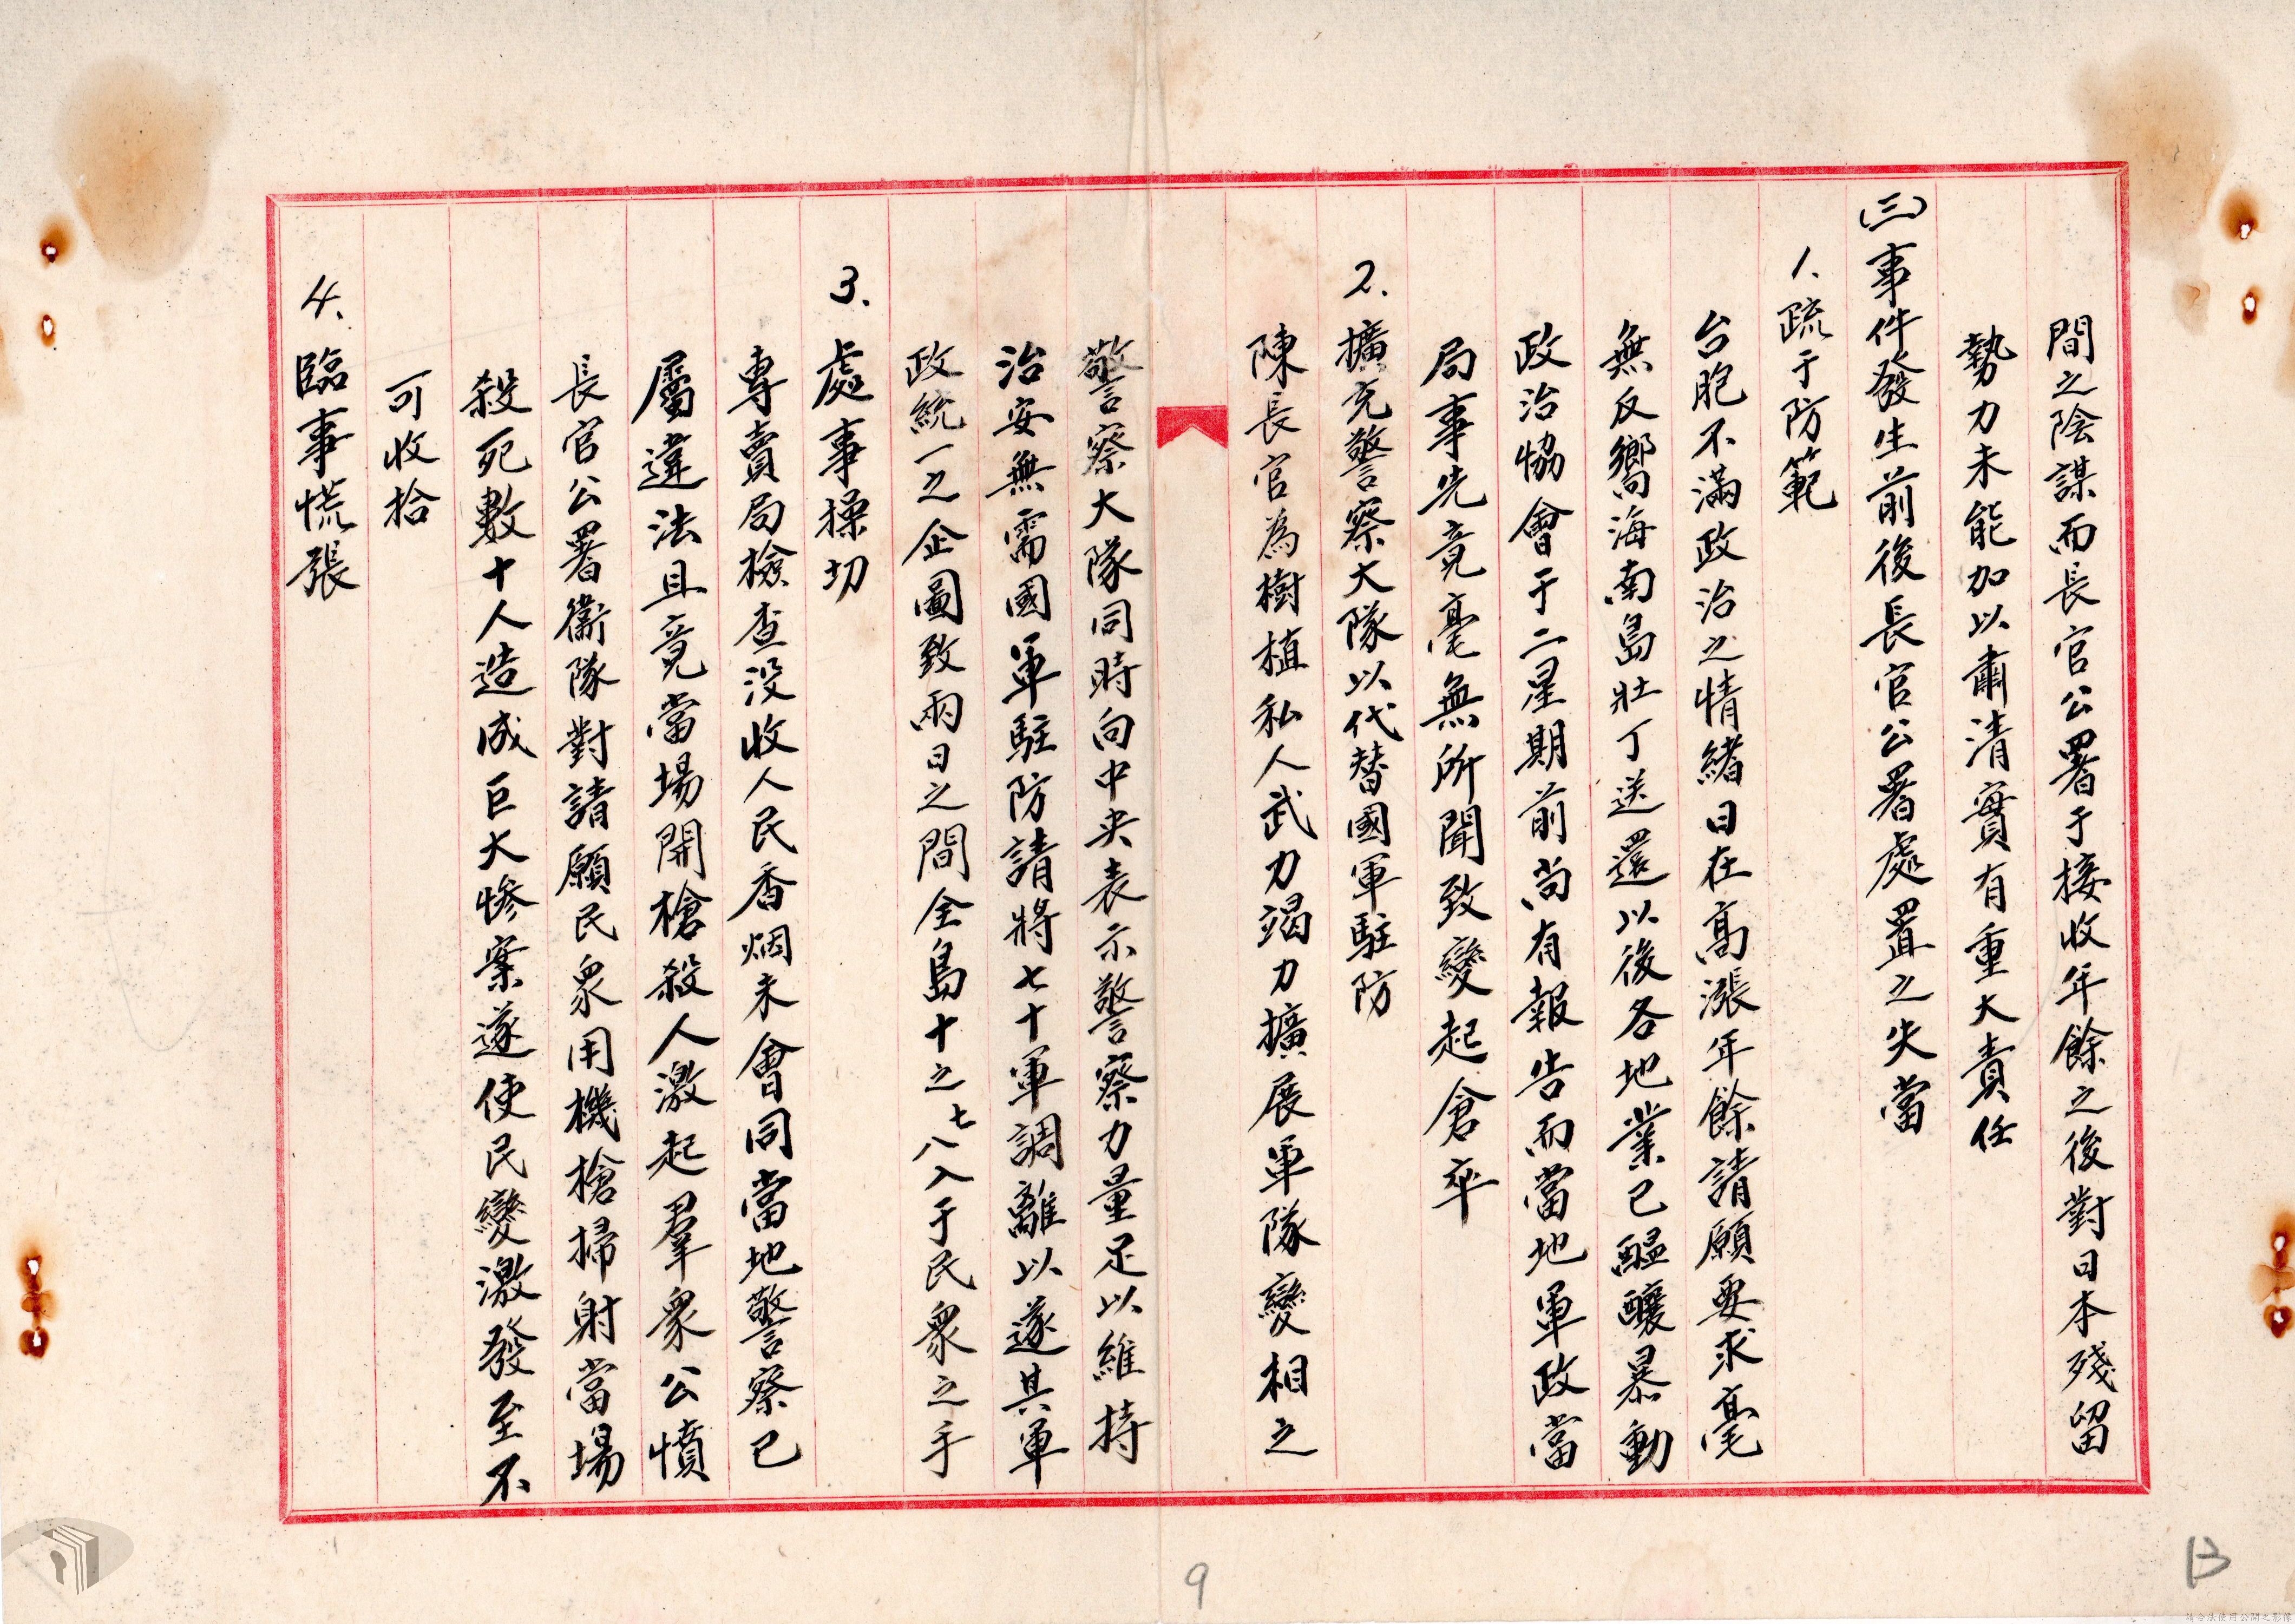 間之陰謀而長官公署于接收年餘之後對日本殘留
勢力未能加以肅清實有重大責任
(三)事件發生前後長官公署處置之失當
1.疏于防範
台胞不滿政治之情緒日在高漲年餘請願要求毫
無反響海南島壯丁送還以後各地業已醞釀暴動
政治協會于二星期前尚有報告而當地軍政當
局事先竟毫無所聞致變起倉卒
2.擴充警察大隊以代替國軍駐防
陳長官為樹植私人武力竭力擴展軍隊變相之
警察大隊同時向中央表示警察力量足以維持
治安無需國軍駐防請將七十軍調離以遂其軍
政統一之企圖致兩日之間全島十之七八入于民眾之手
3.處事操切
專賣局檢查沒收人民香烟未會同當地警察已
屬違法且竟當場開槍殺人激起羣眾公憤
長官公署衛隊對請願民眾用機槍掃射當場
殺死數十人造成巨大慘案遂使民變激發至不
可收拾
4.臨事慌張
9
13
請合法使用公開之影像